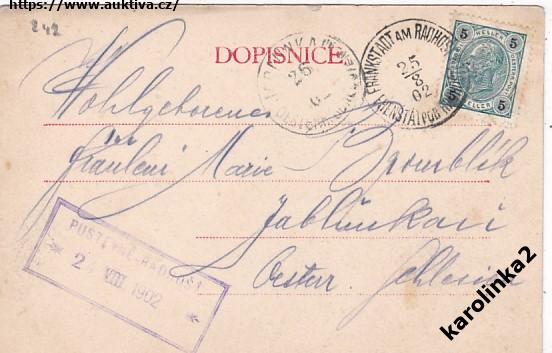 https://www.auktiva.cz/
242
DOPISNICE
FRANKSTADT AM RADHOS
25
8
02
5 HELLER 5
5 HELLER 5
25
Wohlgeborenes
Fräulein Marie
Jablunkau
Oestur. Schlesien
PUSTEVNĚ-RADHOŠŤ
24 VIII 1902
karolinka2